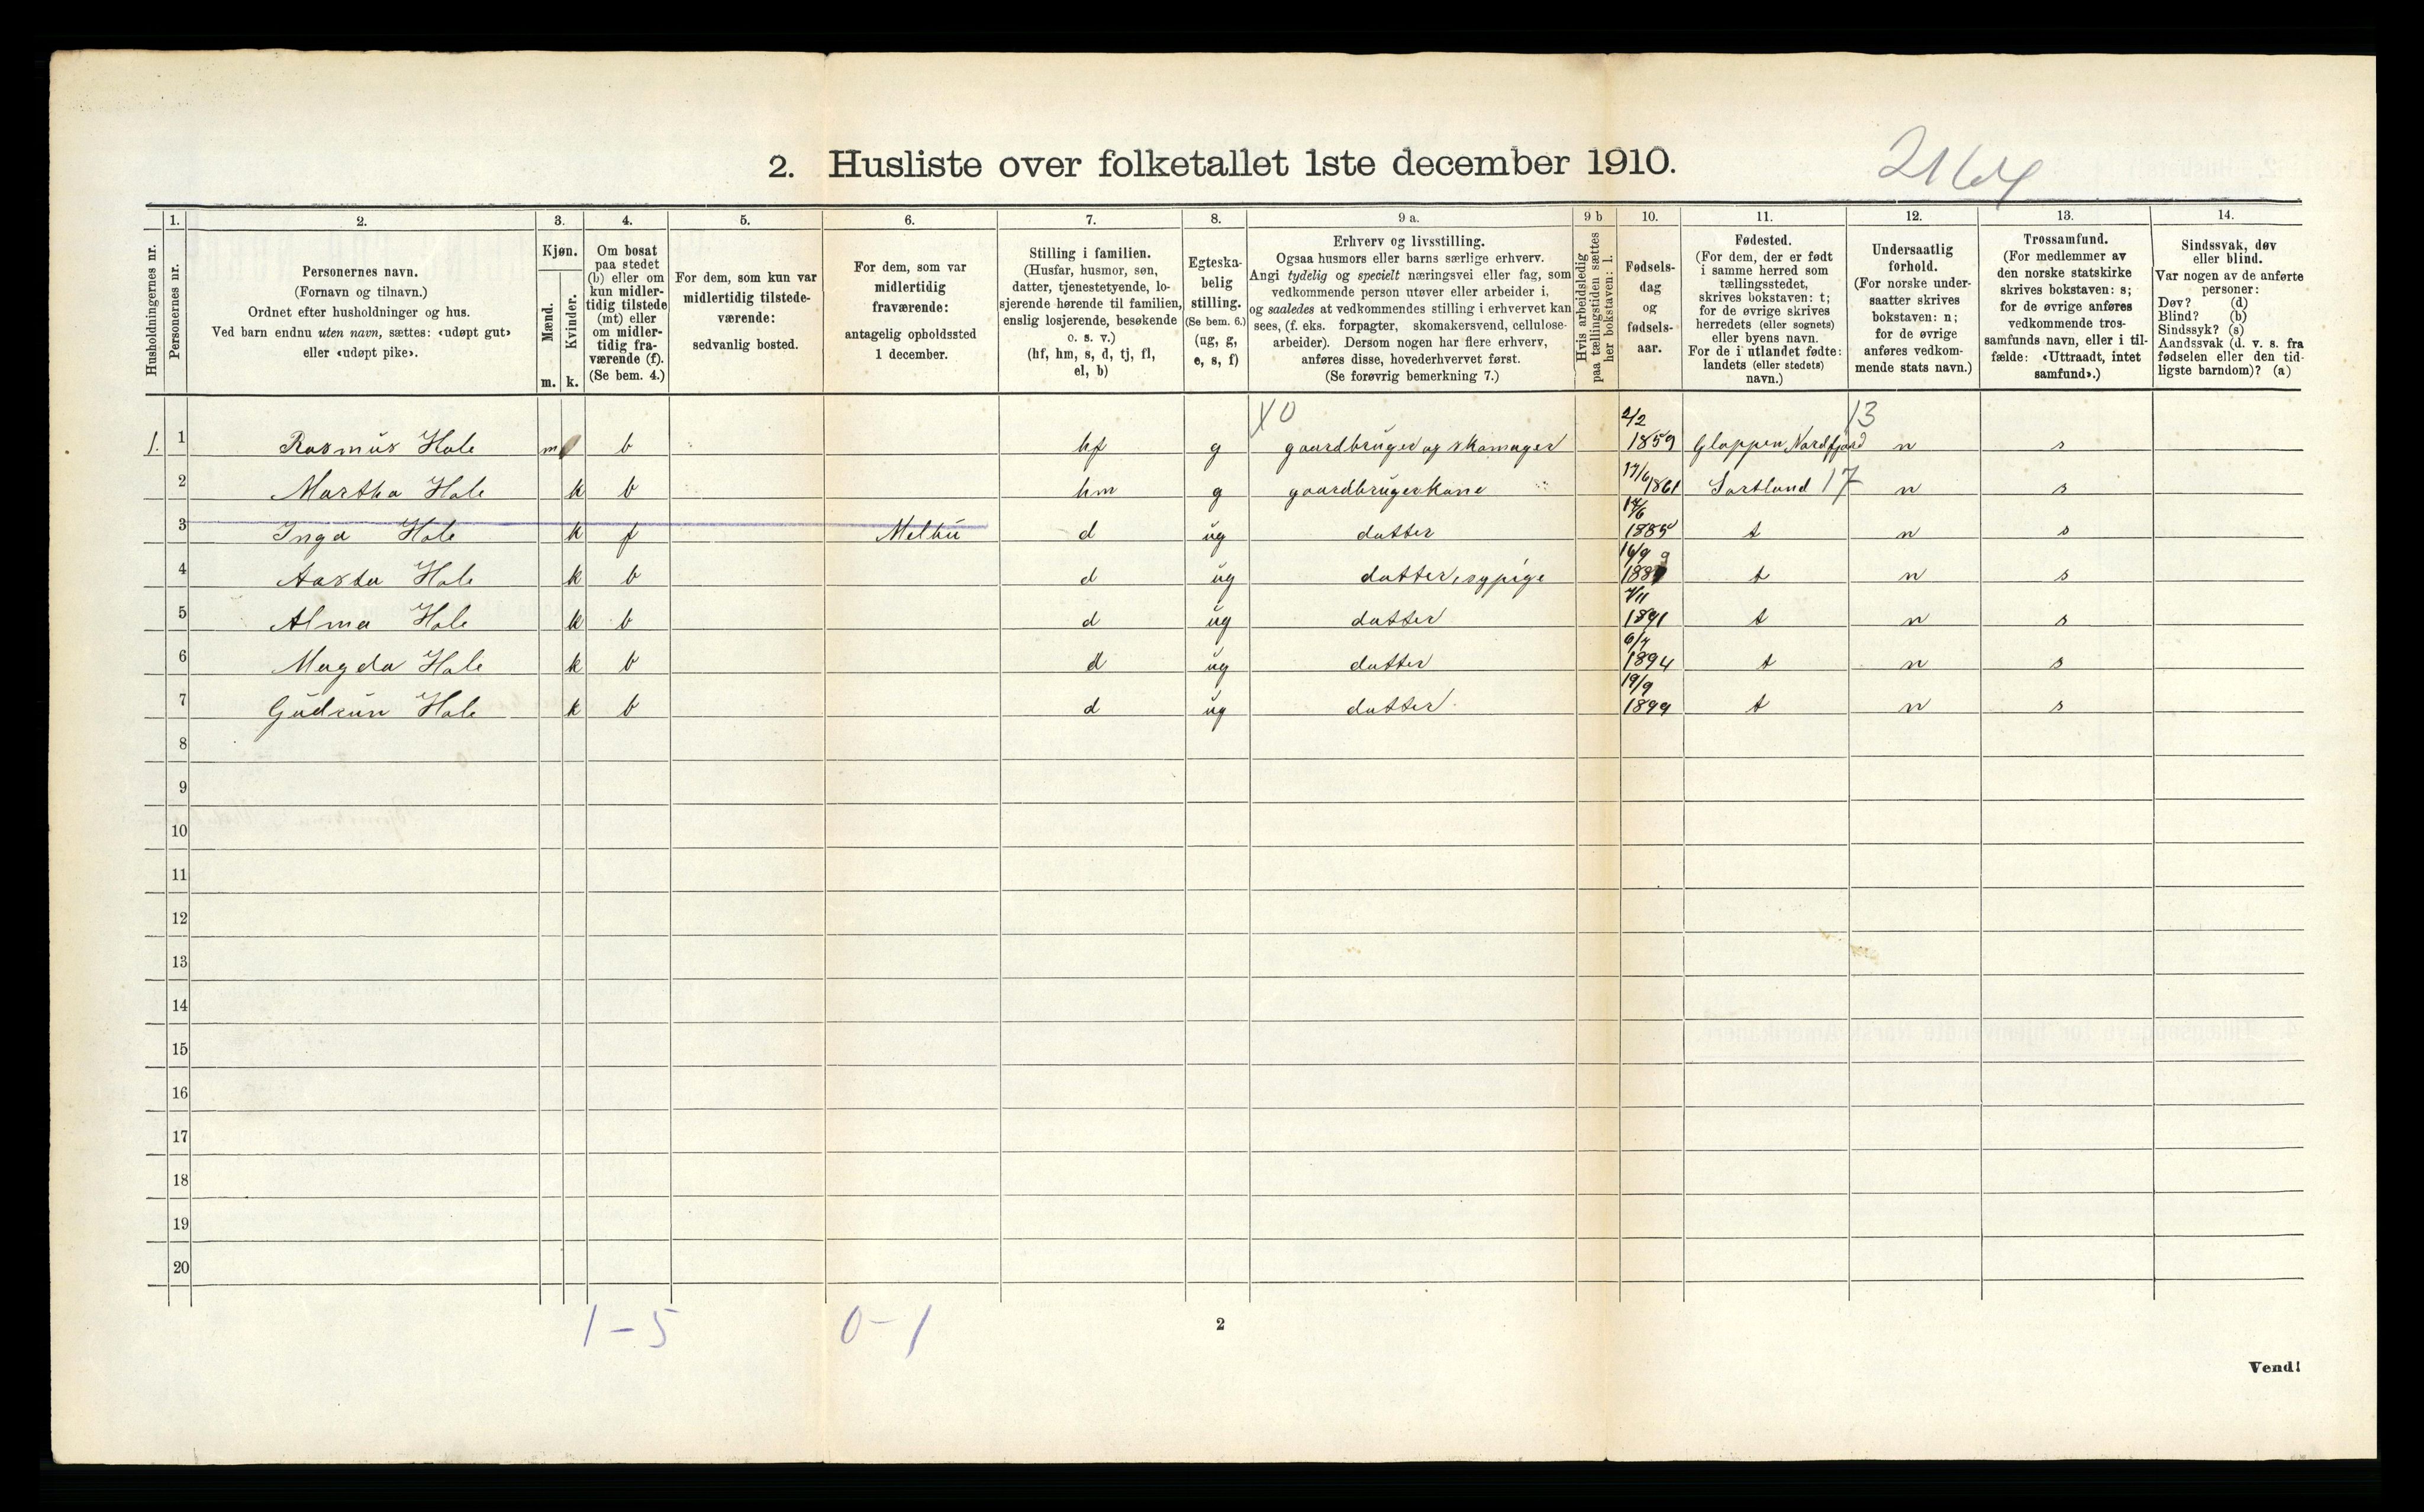 2. Husliste over folketallet 1ste december 1910.
2164
1. 2. 3. 4. 5. 6. 7. 8. 9 a. 9 b 10. 11. 12. 13. 14.
Husholdningernes nr.
Personernes nr.
Personernes navn.
(Fornavn og tilnavn.)
Ordnet efter husholdninger og hus.
Ved barn endnu uten navn, sættes: «udøpt gut»
eller «udøpt pike».
Kjøn.
Mænd.
Kvinder.
m. k.
Om bosat
paa stedet
(b) eller om
kun midler-
tidig tilstede
(mt) eller
om midler-
tidig fra-
værende (f).
(Se bem. 4.)
For dem, som kun var
midlertidig tilstede-
værende:
sedvanlig bosted.
For dem, som var
midlertidig
fraværende:
antagelig opholdssted
1 december.
Stilling i familien.
(Husfar, husmor, søn,
datter, tjenestetyende, lo-
sjerende hørende til familien,
enslig losjerende, besøkende
o. s. v.)
(hf, hm, s, d, tj, fl,
el, b)
Egteska-
belig
stilling.
(Se bem. 6.)
(ug, g,
e, s, f)
Erhverv og livsstilling.
Ogsaa husmors eller barns særlige erhverv.
Angi tydelig og specielt næringsvei eller fag, som
vedkommende person utøver eller arbeider i,
og saaledes at vedkommendes stilling i erhvervet kan
sees, (f. eks. forpagter, skomakersvend, cellulose-
arbeider). Dersom nogen har flere erhverv,
anføres disse, hovederhvervet først.
(Se forøvrig bemerkning 7.)
Hvis arbeidsledig
paa tællingstiden sættes
her bokstaven: l.
Fødsels-
dag
og
fødsels-
aar.
Fødested.
(For dem, der er født
i samme herred som
tællingsstedet,
skrives bokstaven: t;
for de øvrige skrives
herredets (eller sognets)
eller byens navn.
For de i utlandet fødte:
landets (eller stedets)
navn.)
Undersaatlig
forhold.
(For norske under-
saatter skrives
bokstaven: n;
for de øvrige
anføres vedkom-
mende stats navn.)
Trossamfund.
(For medlemmer av
den norske statskirke
skrives bokstaven: s;
for de øvrige anføres
vedkommende tros-
samfunds navn, eller i til-
fælde: «Uttraadt, intet
samfund».)
Sindssvak, døv
eller blind.
Var nogen av de anførte
personer:
Døv? (d)
Blind? (b)
Sindssyk? (s)
Aandssvak (d. v. s. fra
fødselen eller den tid-
ligste barndom)? (a)
X0 2/2 13
1. 1 Rasmus Hole m b hf g gaardbruger og skomager 1859 Gloppen, Nordfjord n s
2 Martha Hole k b hm g gaardbrugerkone 17/6 1861 Sortland 17 n s
3 Inga Hole k f Melbu d ug datter 1885 t n s
4 Aasta Hole k b d ug datter, sypige 16/9 1889 t n s
5 Alma Hole k b d ug datter 1891 t n s
6 Magda Hole k b d ug datter 6/7 1894 t n s
7 Gudrun Hole k b d ug datter 19/9 1899 t n s
8
9
10
11
12
13
14
15
16
17
18
19
20
1-5 0-1
2
Vend!